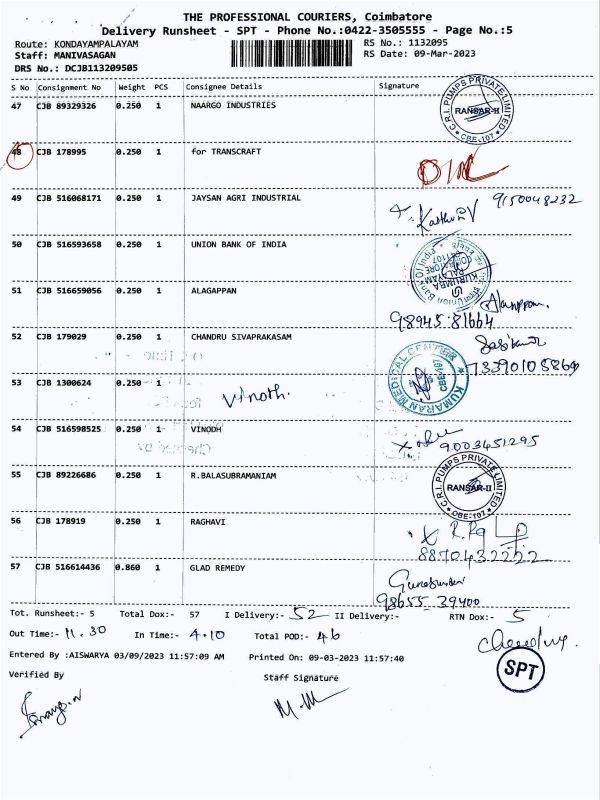 THE PROFESSIONAL COURIERS, Coimbatore
Delivery Runsheet - SPT - Phone No.:0422-3505555 - Page No.:5
Route: KONDAYAMPALAYAM RS No.: 1132095
Staff: MANIVASAGAN RS Date: 09-Mar-2023
DRS No.: DCJB113209505
S No Consignment No Weight PCS Consignee Details Signature
47 CJB 89329326 0.250 1 NAARGO INDUSTRIES
C.R.I. PUMPS PRIVATE LIMITED RANSAR-II CBE-107
48 CJB 178995 0.250 1 for TRANSCRAFT
49 CJB 516068171 0.250 1 JAYSAN AGRI INDUSTRIAL 9150048232
50 CJB 516593658 0.250 1 UNION BANK OF INDIA
51 CJB 516659056 0.250 1 ALAGAPPAN
98945 81664
52 CJB 179029 0.250 1 CHANDRU SIVAPRAKASAM
KUMARAN MEDICAL CENTER
53 CJB 1300624 0.250 1 Vinoth.
54 CJB 516598525 0.250 1 VINODH
9003451295
55 CJB 89226686 0.250 1 R.BALASUBRAMANIAM
C.R.I. PUMPS PRIVATE LIMITED RANSAR-II CBE-107
56 CJB 178919 0.250 1 RAGHAVI
8870432252
57 CJB 516614436 0.860 1 GLAD REMEDY
98655 39400
Tot. Runsheet:- 5 Total Dox:- 57 I Delivery:- 52 II Delivery:- RTN Dox:- 5
Out Time:- 11.30 In Time:- 4.10 Total POD:- 46
Entered By :AISWARYA 03/09/2023 11:57:09 AM Printed On: 09-03-2023 11:57:40
SPT
Verified By Staff Signature